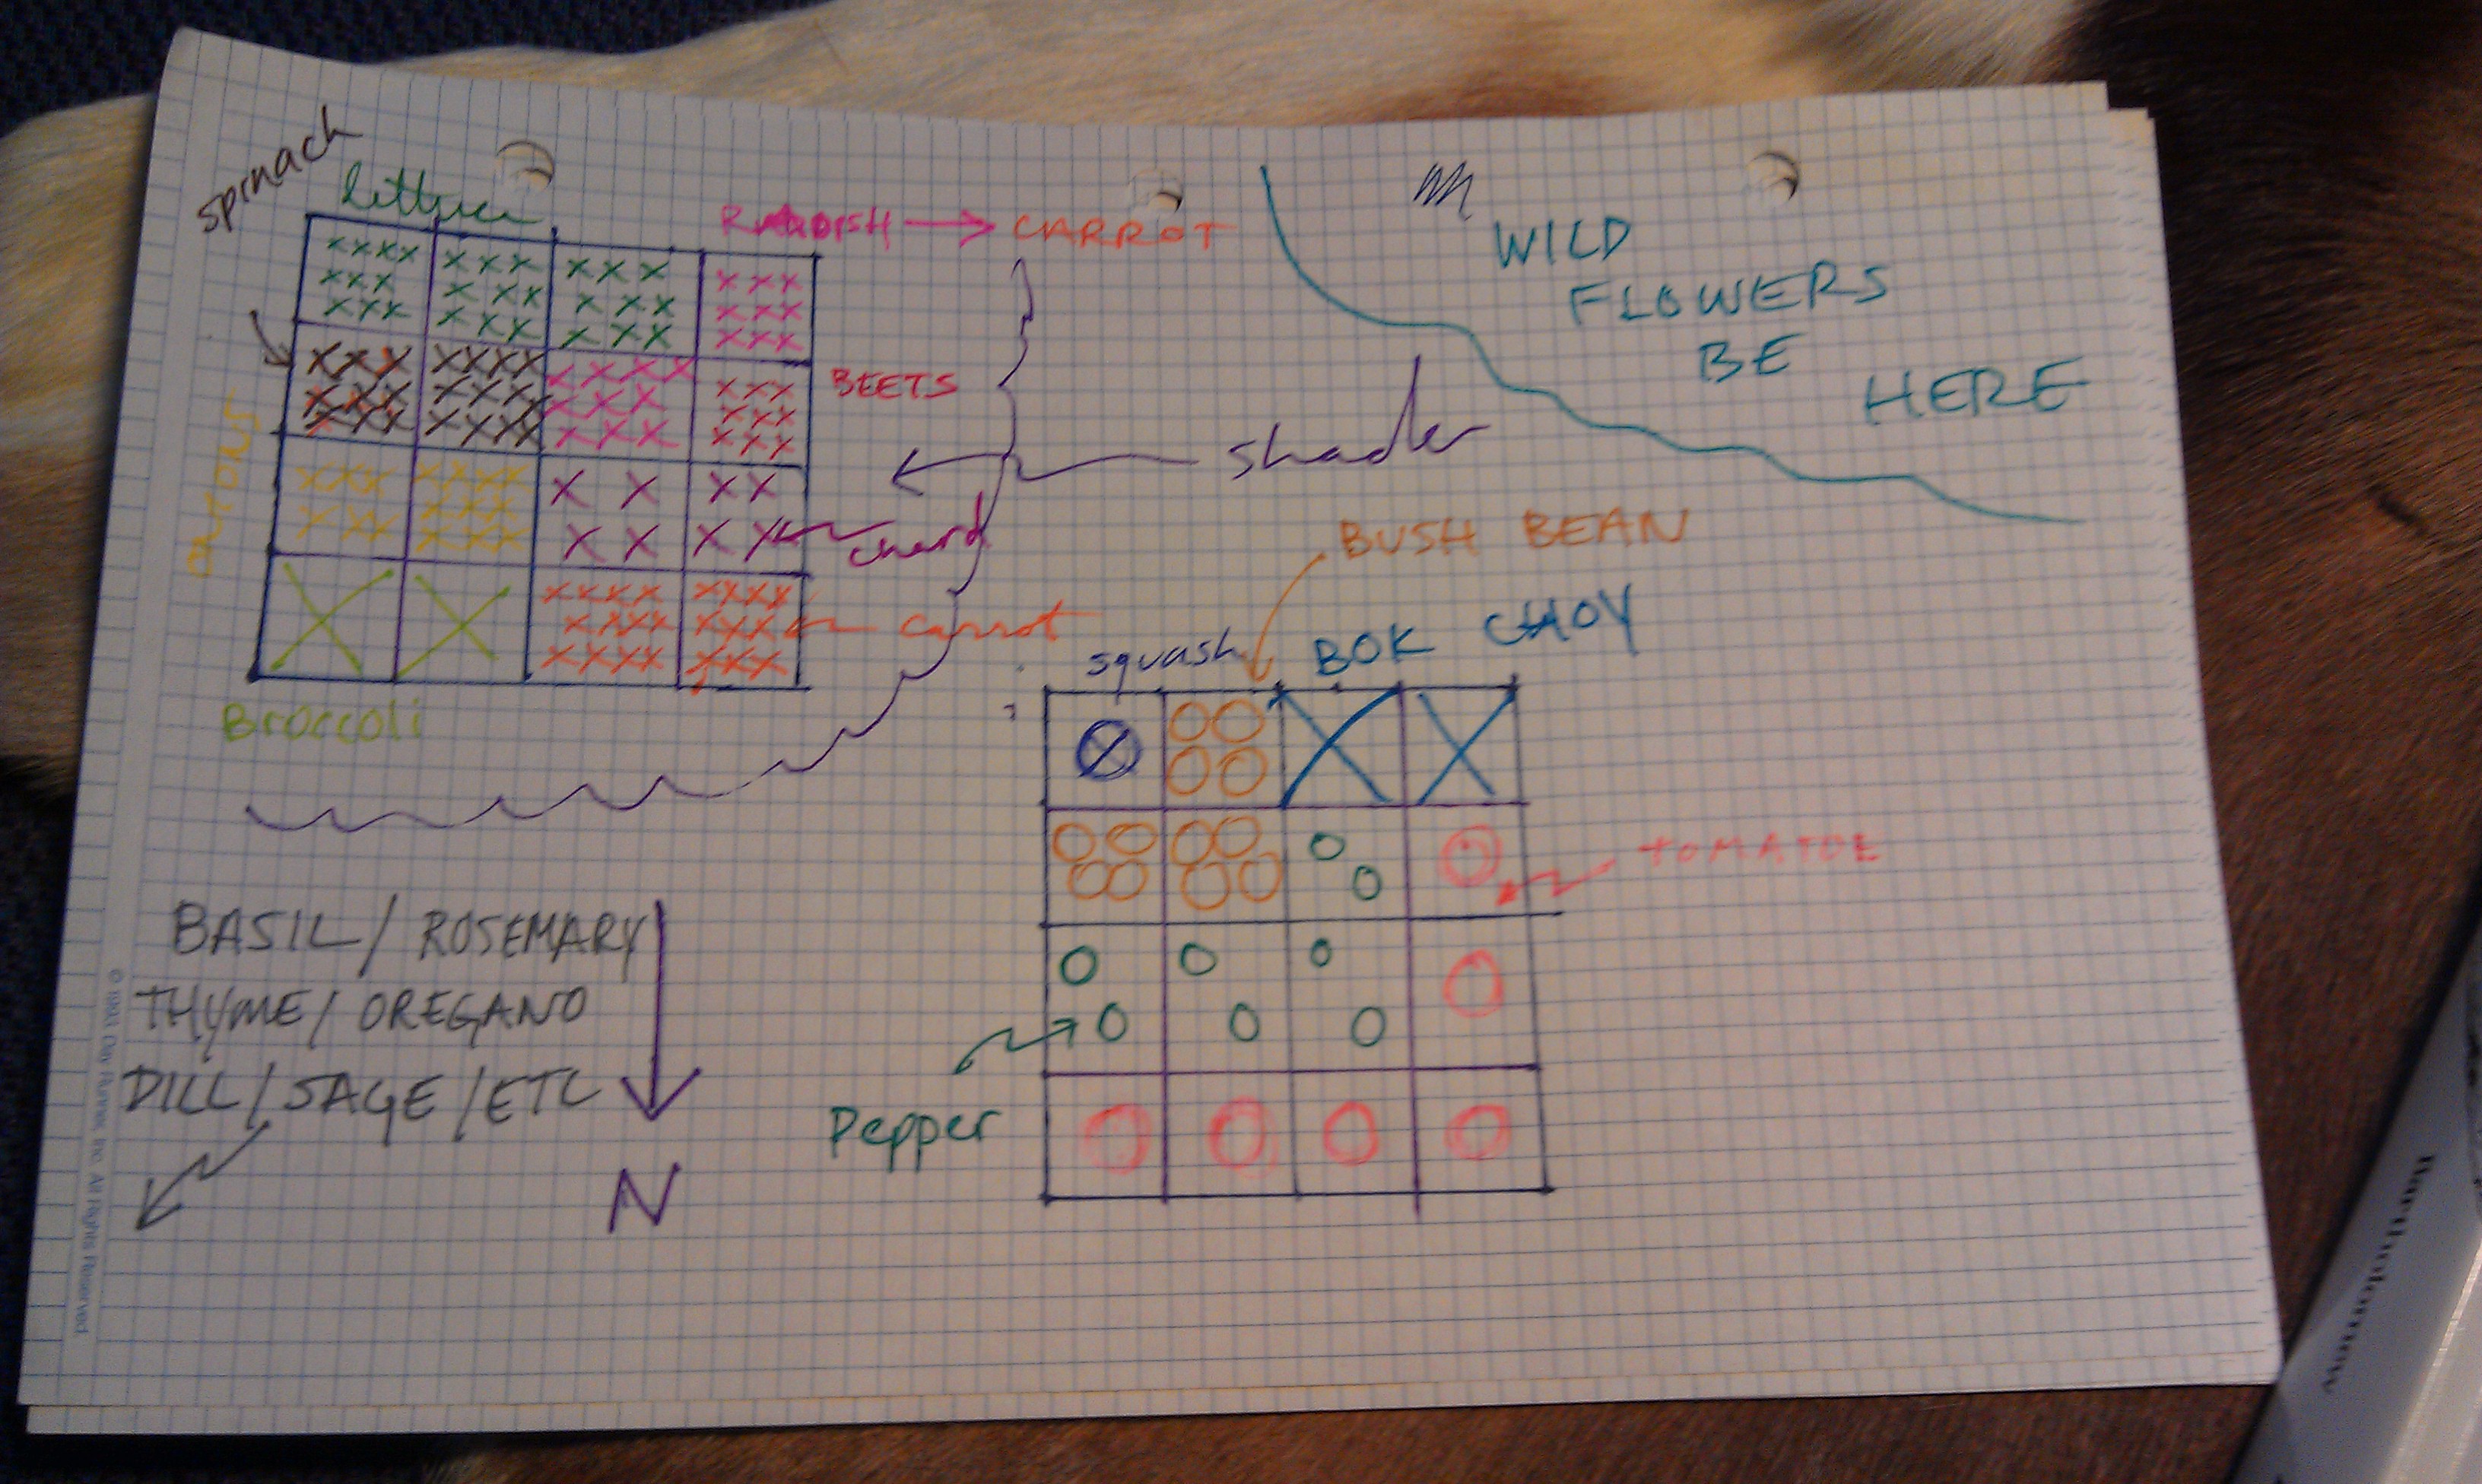 spinach
lettuce
RADISH → CARROT
WILD
FLOWERS
BE
HERE
BEETS
shade
ONIONS
chard
carrot
Broccoli
BUSH BEAN
squash
BOK CHOY
TOMATOE
Pepper
BASIL / ROSEMARY
THYME / OREGANO
DILL / SAGE / ETC
N